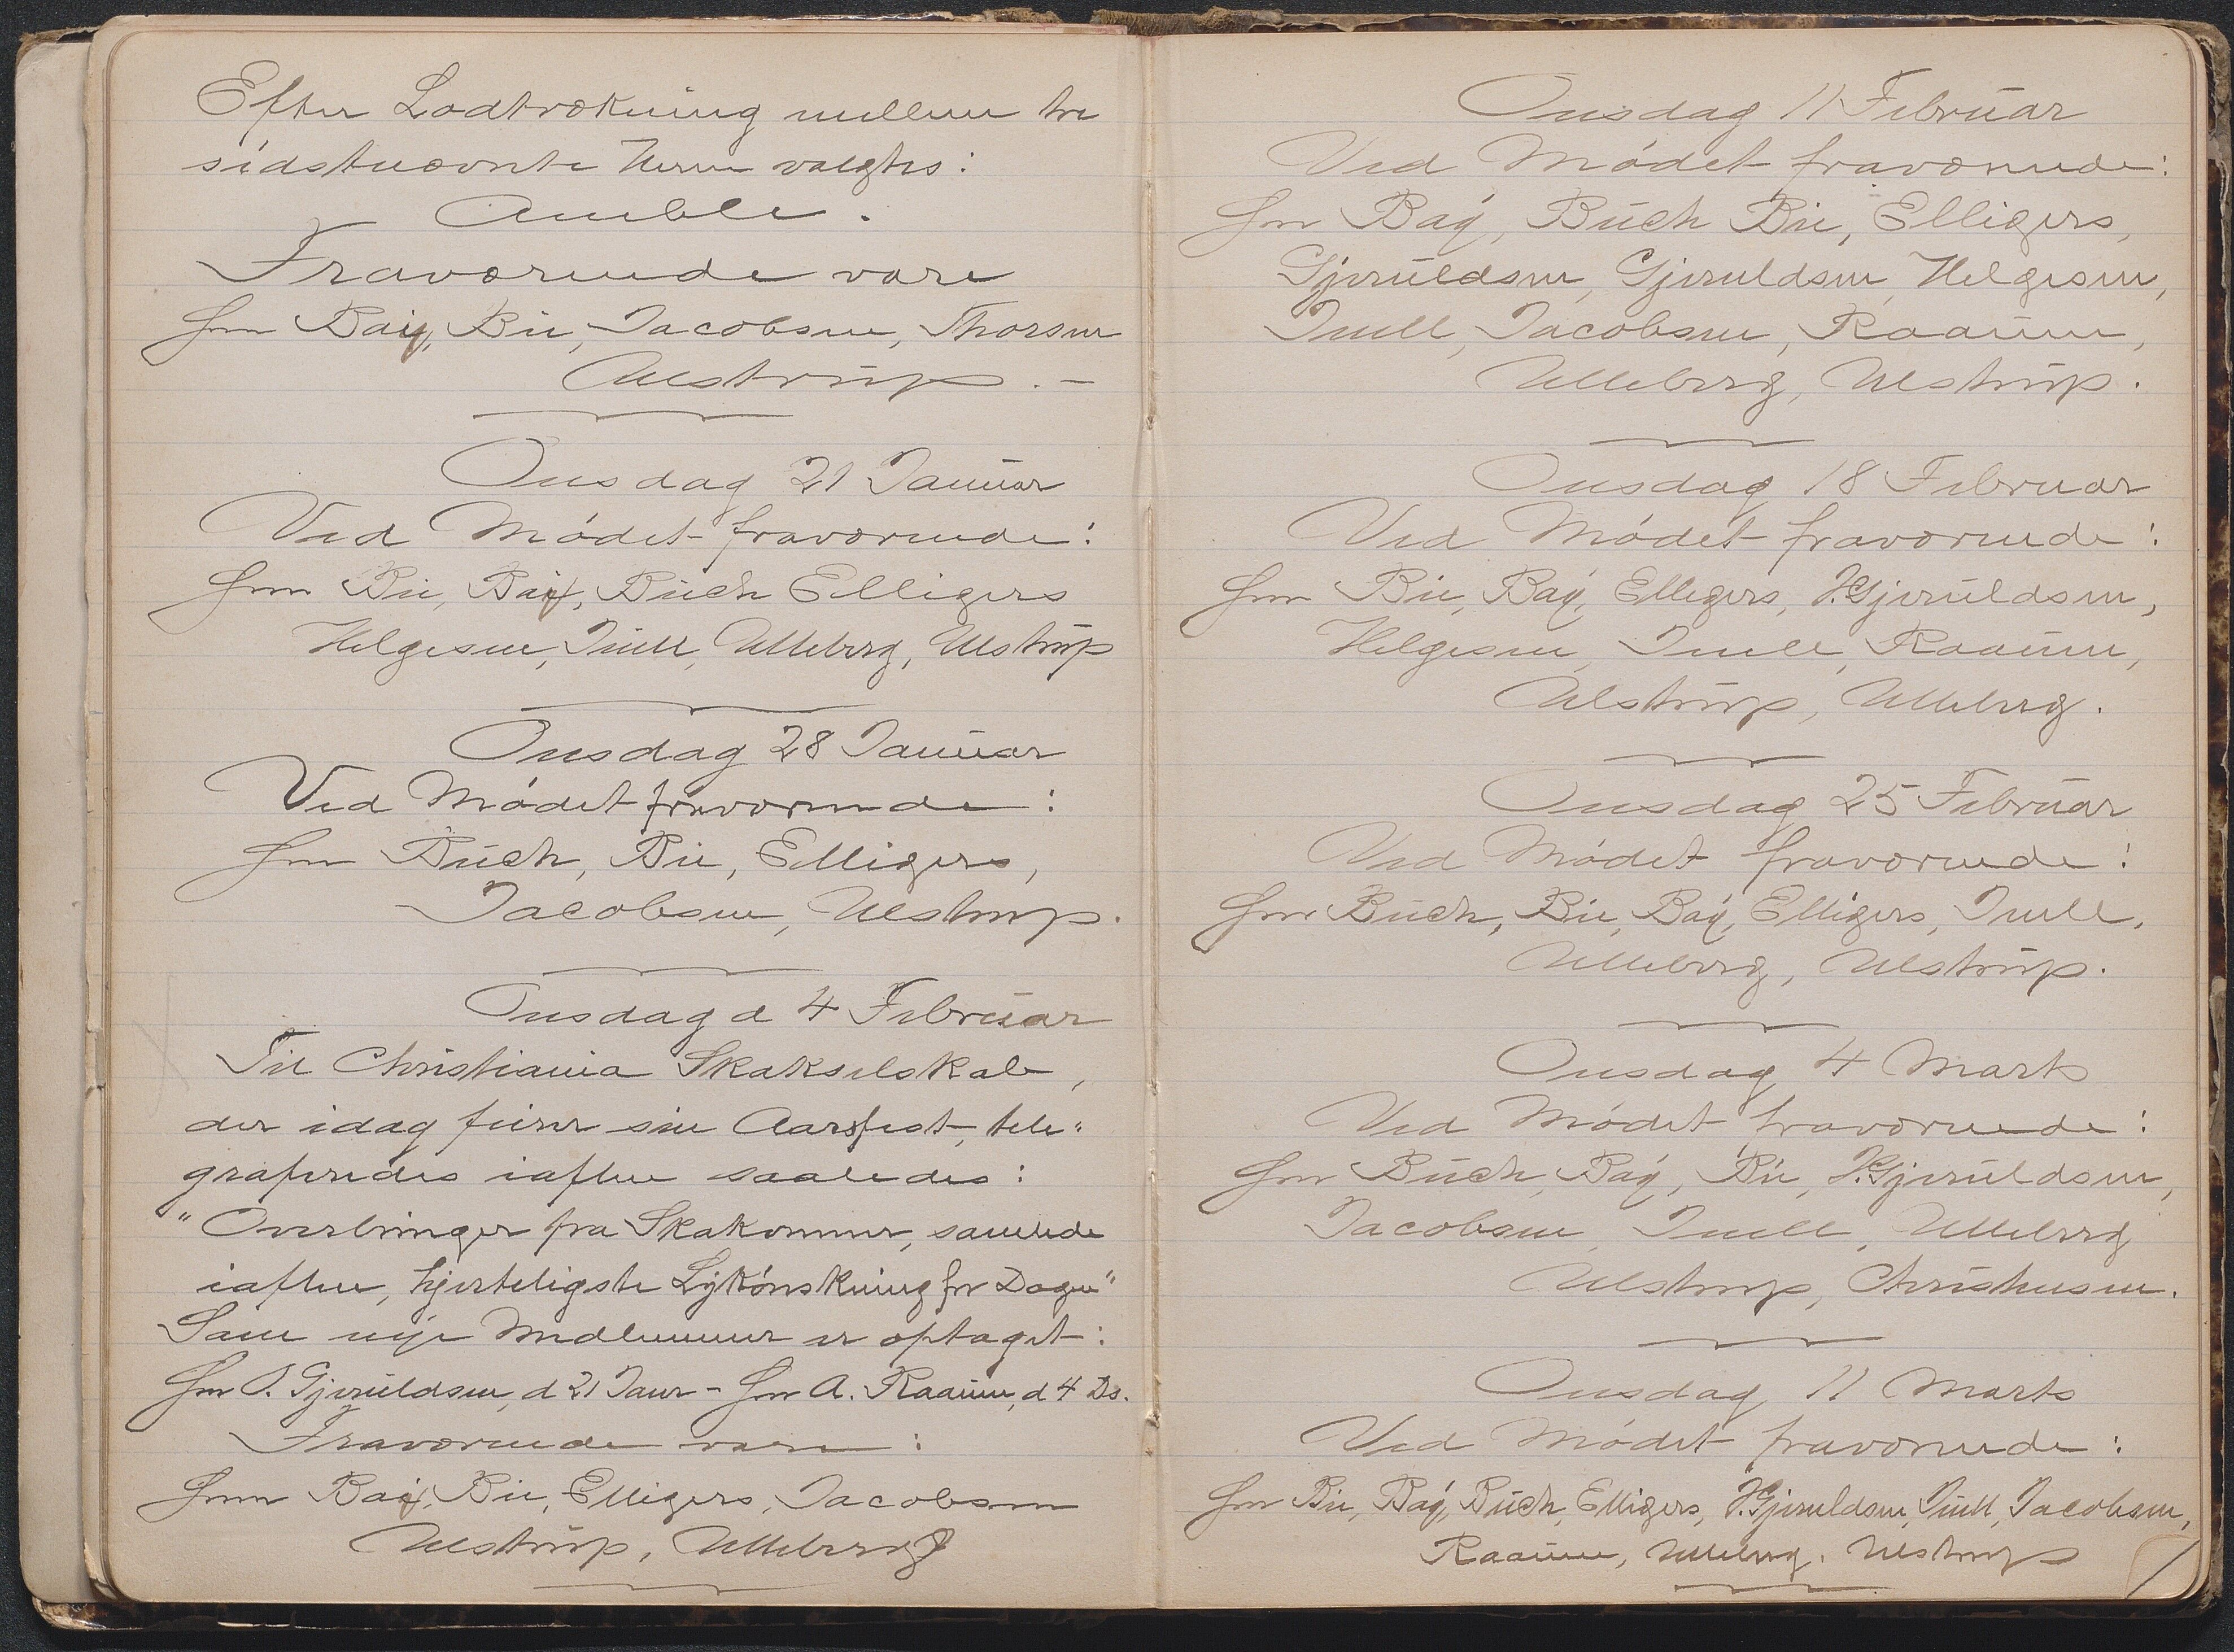 Efter Lodtrækning mellem tre
sidstnævnte Herrer valgtes:
Amble.
Fraværende vare
Hrr Baij, Bie, Jacobsen, Thorsen
Ulstrup. –
Onsdag 21 Januar
Ved Mødet fraværende:
Hrr Bie, Baij, Buch Elligers
Helgesen, Juell, Ulleberg, Ulstrup
Onsdag 28 Januar
Ved Mødet fraværende:
Hrr Buch, Bie, Elligers,
Jacobsen, Ulstrup.
Onsdag d 4 Februar
Til Christiania Skakselskab,
der idag feirer sin Aarsfest, tele"
graferedes iaften saaledes:
"Overbringer fra Skakvenner, samlede
iaften, hjerteligste Lykønskning for Dagen"
Som nye Medlemmer er optaget:
Hrr Gjeruldsen, d 21 Janr – Hrr A. Raaum, d 4 Ds.
Fraværende vare:
Hrr Baij, Bie, Elligers, Jacobsen
Ulstrup, Ulleberg
Onsdag 11 Februar
Ved Mødet fraværende:
Hrr Baij, Buch Bie, Elligers,
Gjeruldsen, Gjeruldsen, Helgesen,
Juell, Jacobsen, Raaum,
Ulleberg, Ulstrup.
Onsdag 18 Februar
Ved Mødet fraværende:
Hrr Bie, Baij, Elligers, H. Gjeruldsen,
Helgesen, Juell, Raaum,
Ulstrup, Ulleberg.
Onsdag 25 Februar
Ved Mødet fraværende:
Hrr Buch, Bie, Baij, Elligers, Juell,
Ulleberg, Ulstrup.
Onsdag 4 Marts
Ved Mødet fraværende:
Hrr Buch, Baij, Bie, H. Gjeruldsen,
Jacobsen, Juell, Ulleberg
Ulstrup, Christensen.
Onsdag 11 Marts
Ved Mødet fraværende:
Hrr Bie, Baij, Buch, Elligers, H. Gjeruldsen, Juell, Jacobsen,
Raaum, Ulleberg, Ulstrup